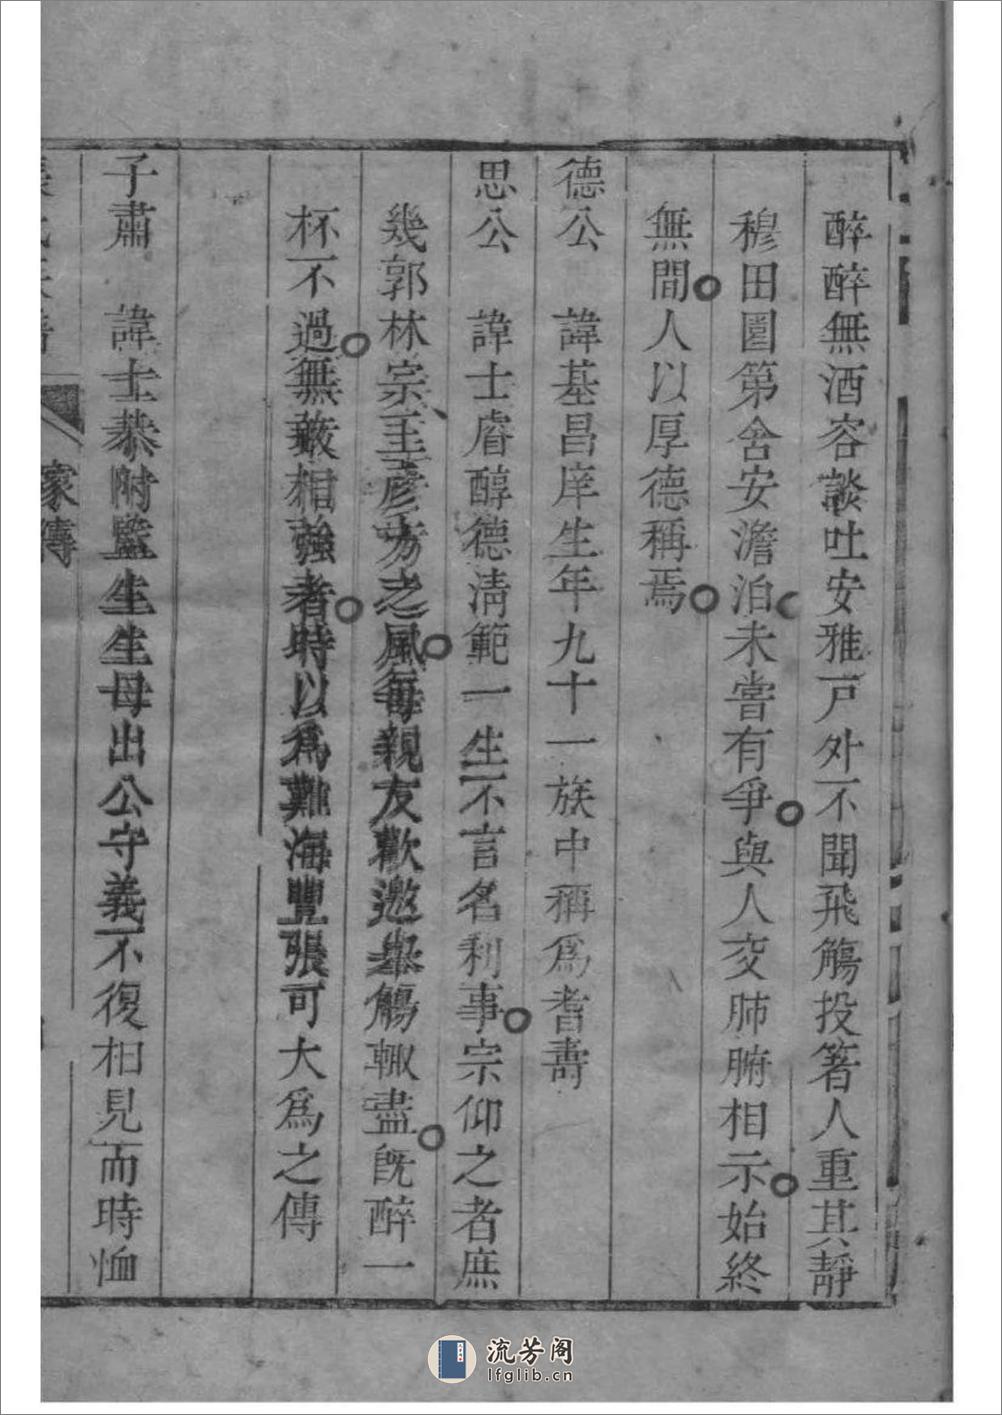 醉醉無酒容談吐安雅戸外不聞飛觴投箸人重其靜
穆田園第舍安澹泊未嘗有爭與人交肺腑相示始終
無間人以厚德稱焉
德公　諱基昌庠生年九十一族中稱爲耆壽
思公　諱士睿醇德淸範一生不言名利事宗仰之者庶
幾郭林宗王彦方之風每親友歡邀舉觴輙盡旣醉一
杯不過無敢相強者時以爲難海豐張可大爲之傳
子肅　諱士恭附監生生母出公守義不復相見而時恤
家傳
流芳阁
lfglib.cn